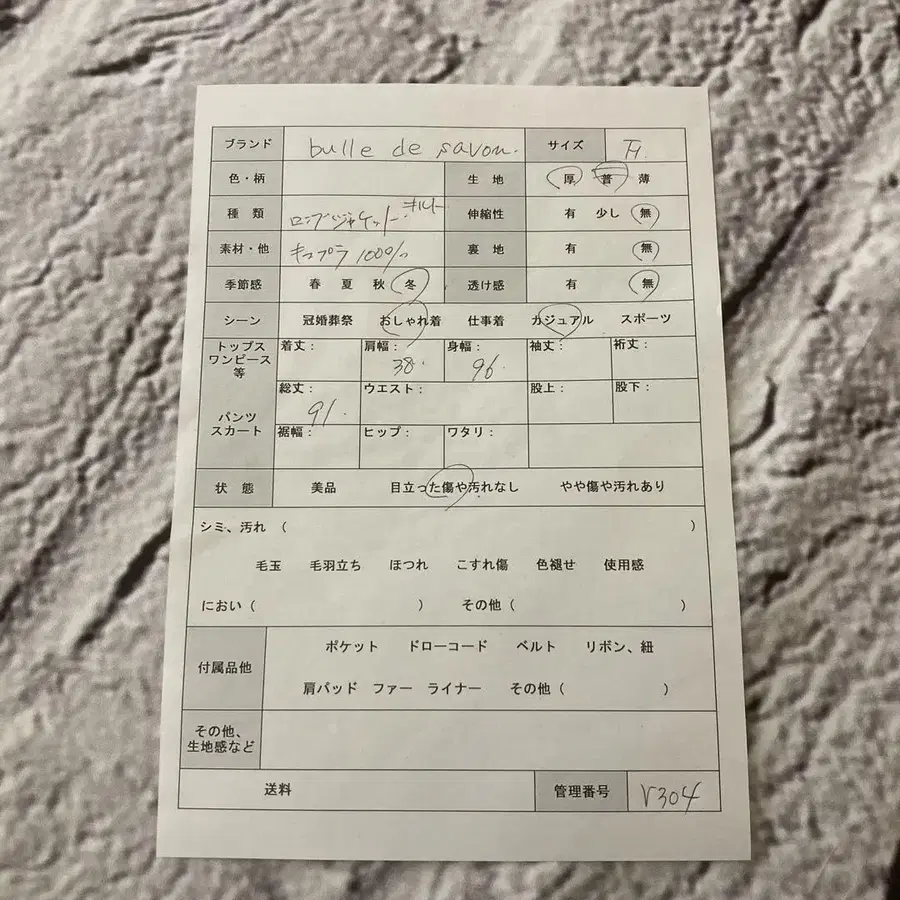 ブランド bulle de savon. サイズ F.
色・柄 生 地 厚 普 薄
種 類 ロングジャケット キルト 伸縮性 有 少し 無
素材・他 キュプラ100% 裏 地 有 無
季節感 春 夏 秋 冬 透け感 有 無
シーン 冠婚葬祭 おしゃれ着 仕事着 カジュアル スポーツ
トップス ワンピース 等 着丈: 肩幅: 38. 身幅: 96. 袖丈: 裄丈:
パンツ スカート 総丈: 91. ウエスト: 股上: 股下:
裾幅: ヒップ: ワタリ:
状 態 美品 目立った傷や汚れなし やや傷や汚れあり
シミ、汚れ ( )
毛玉 毛羽立ち ほつれ こすれ傷 色褪せ 使用感
におい ( ) その他 ( )
付属品他 ポケット ドローコード ベルト リボン、紐
肩パッド ファー ライナー その他 ( )
その他、
生地感など
送料 管理番号 V304